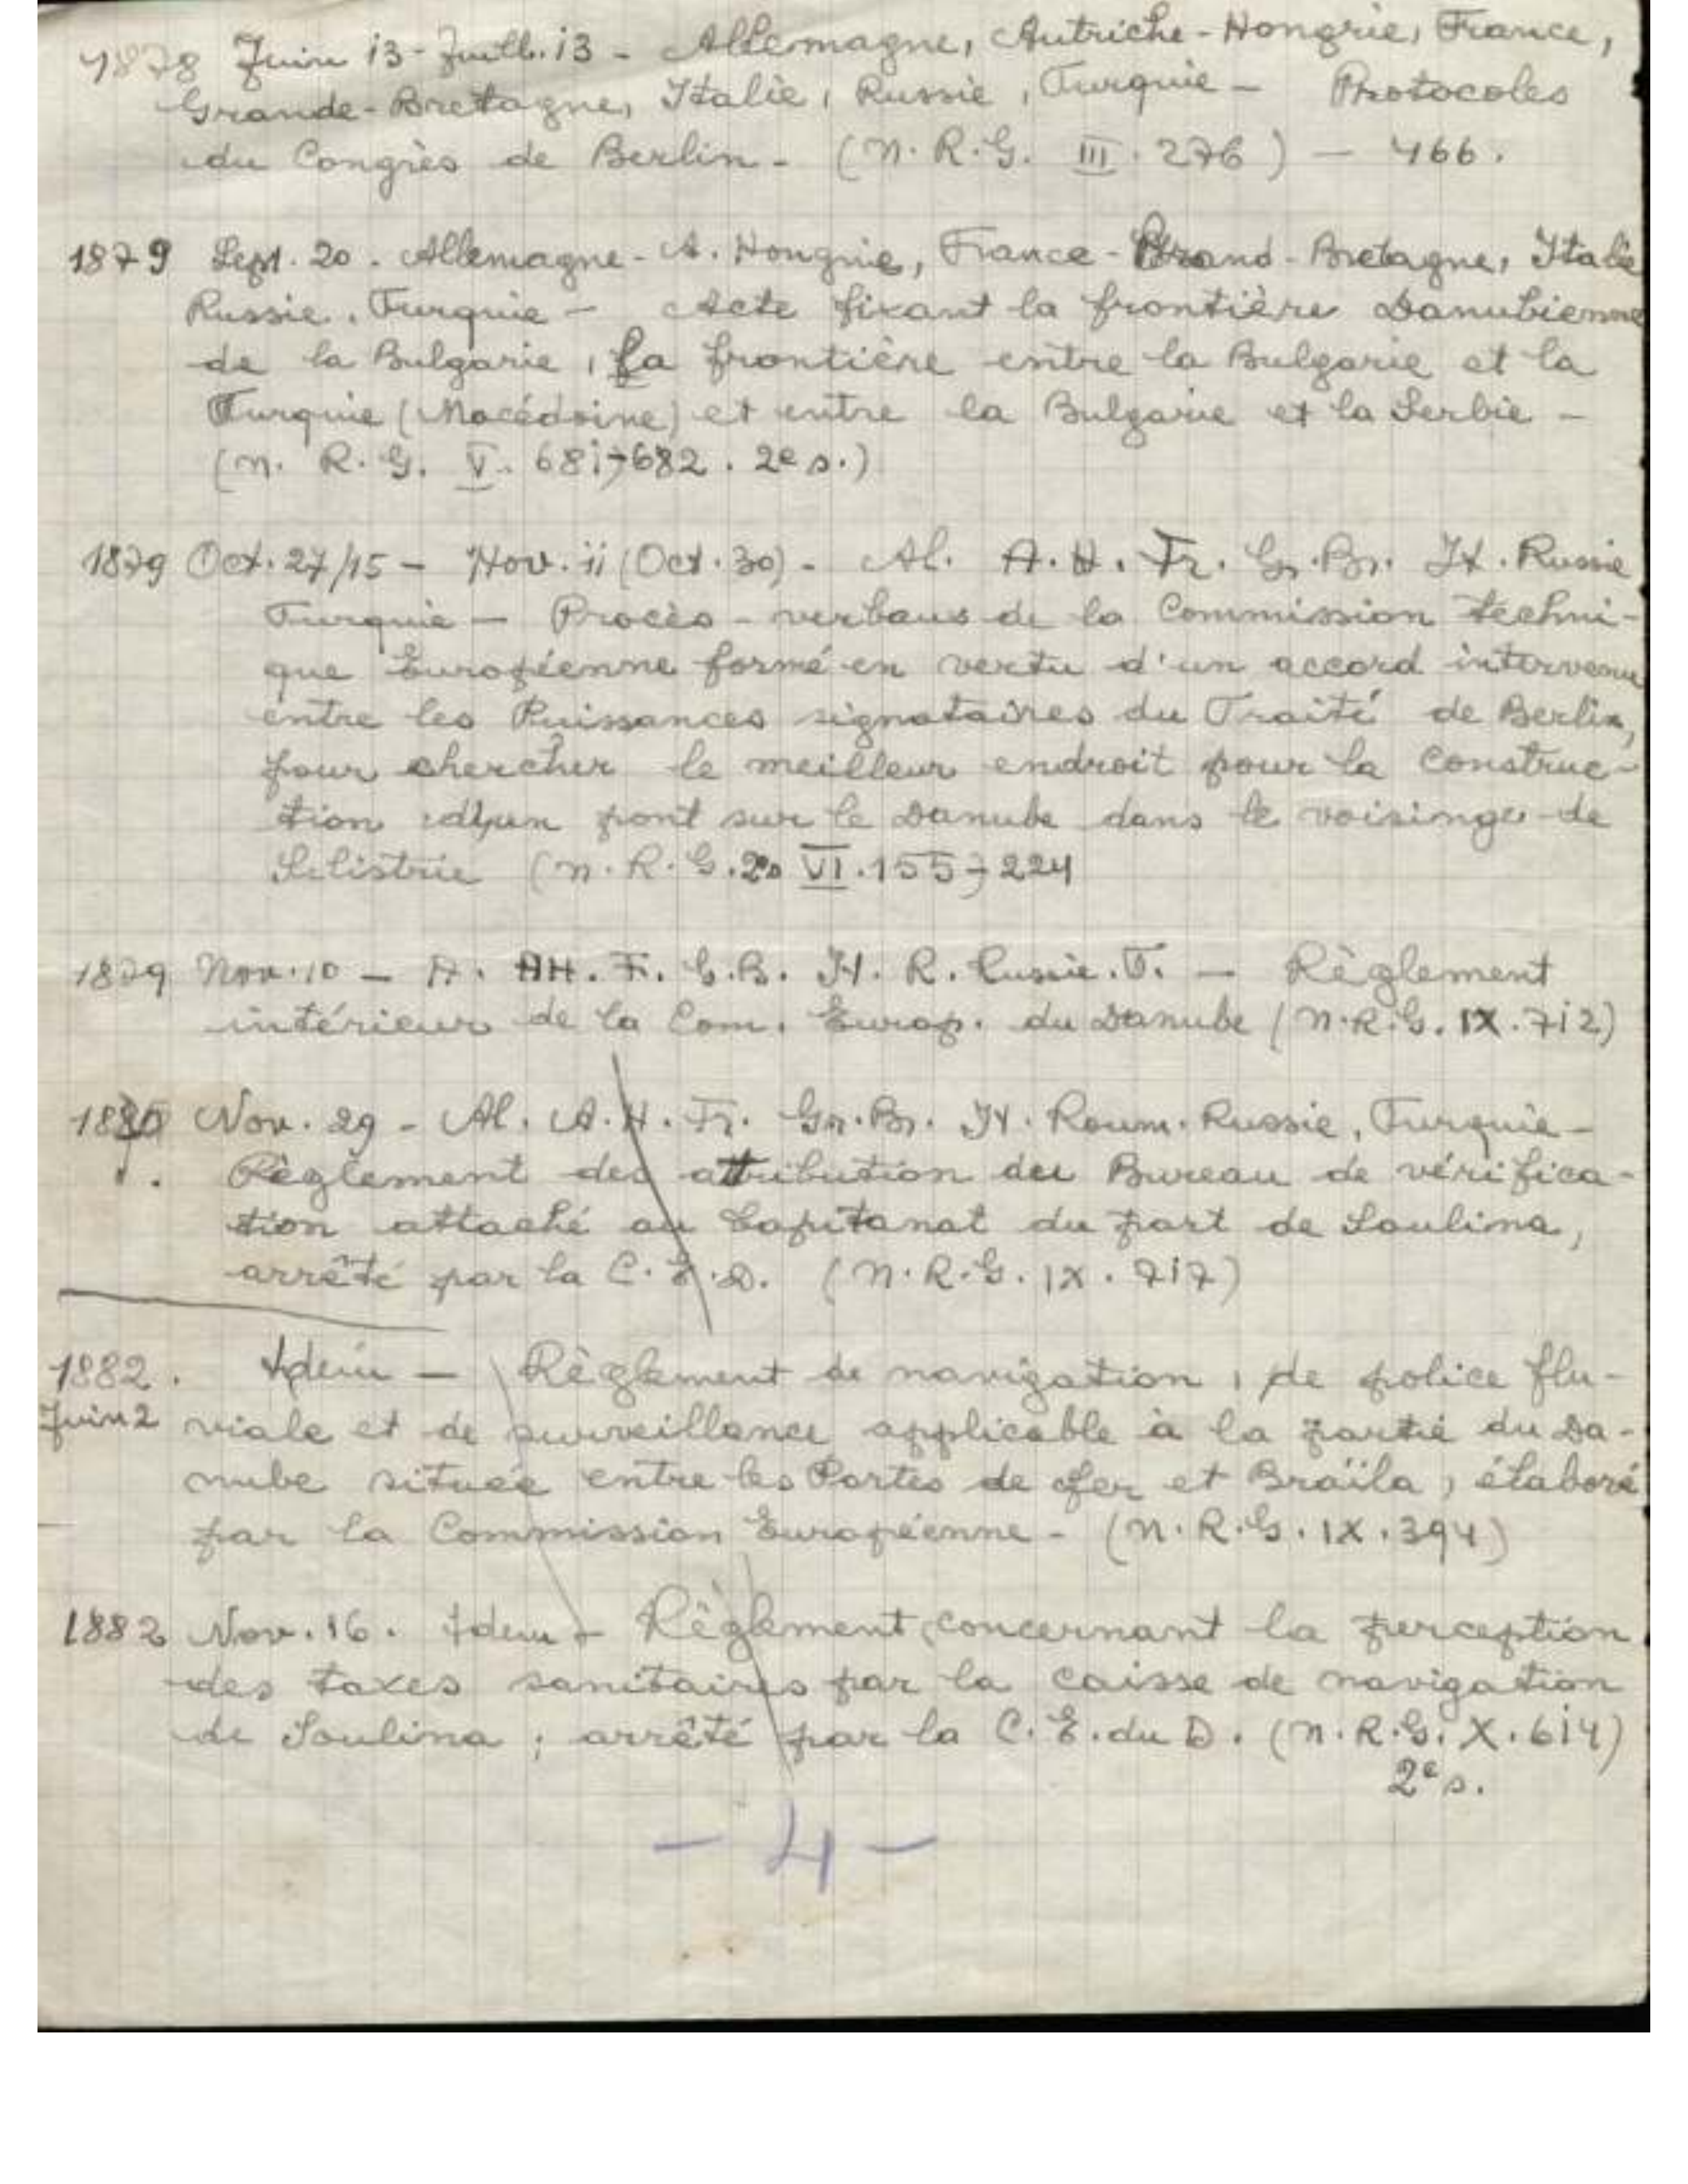 1878 Juin 13 - Juill. 13 - Allemagne, Autriche-Hongrie, France,
Grande-Bretagne, Italie, Russie, Turquie - Protocoles
du Congrès de Berlin - (N. R. G. III. 276) - 466.
1879 Sept. 20. Allemagne - A. Hongrie, France - Grand-Bretagne, Italie
Russie, Turquie - Acte fixant la frontière Danubienne
de la Bulgarie, la frontière entre la Bulgarie et la
Turquie (Macédoine) et entre la Bulgarie et la Serbie -
(N. R. G. V. 681-682. 2e s.)
1879 Oct. 27/15 - Nov. 11 (Oct. 30) - Al. A. H. Fr. Gr. Br. It. Russie
Turquie - Procès-verbaux de la Commission techni-
que Européenne formé en vertu d'un accord intervenu
entre les Puissances signataires du Traité de Berlin,
pour chercher le meilleur endroit pour la construc-
tion d'un pont sur le Danube dans le voisinge de
Silistrie (N. R. G. 2s VI. 155-224
1879 Nov. 10 - A. AH. F. G.B. It. R. Russie. T. - Règlement
intérieur de la Com. Europ. du Danube (N.R.G. IX. 712)
1880 Nov. 29 - Al. A. H. Fr. Gr. Br. It. Roum. Russie, Turquie -
Règlement des attribution du Bureau de vérifica-
tion attaché au Capitanat du port de Soulina,
arrêté par la C. E. D. (N. R. G. IX. 717)
1882. Idem - Règlement de navigation, de police flu-
Juin 2 viale et de surveillance applicable à la partie du Da-
nube située entre les Portes de fer et Braïla, élaboré
par la Commission Européenne - (N. R. G. IX. 394)
1882 Nov. 16. Idem - Règlement concernant la perception
des taxes sanitaires par la caisse de navigation
de Soulina; arrêté par la C. E. du D. (N. R. G. X. 614)
2e s.
- 4 -